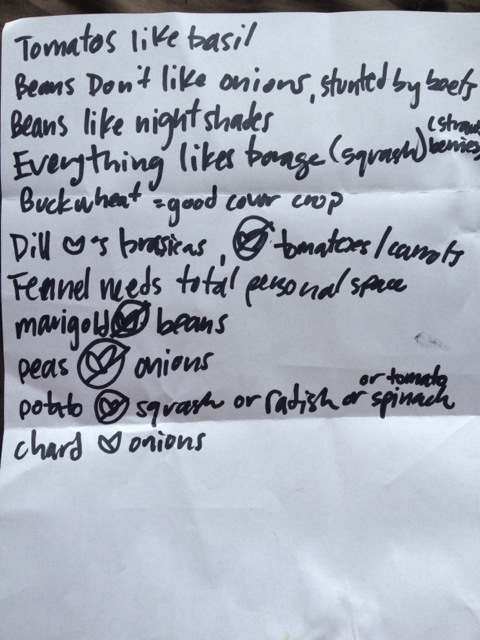 Tomatos like basil
Beans Don't like onions, stunted by beets
Beans like nightshades
Everything likes borage (squash) (strawberries)
Buckwheat = good cover crop
Dill ♡'s brasicas, ♡ tomatoes/carrots
Fennel needs total personal space
marigold ♡ beans
peas ♡ onions
potato ♡ squash or radish or spinach or tomato
chard ♡ onions